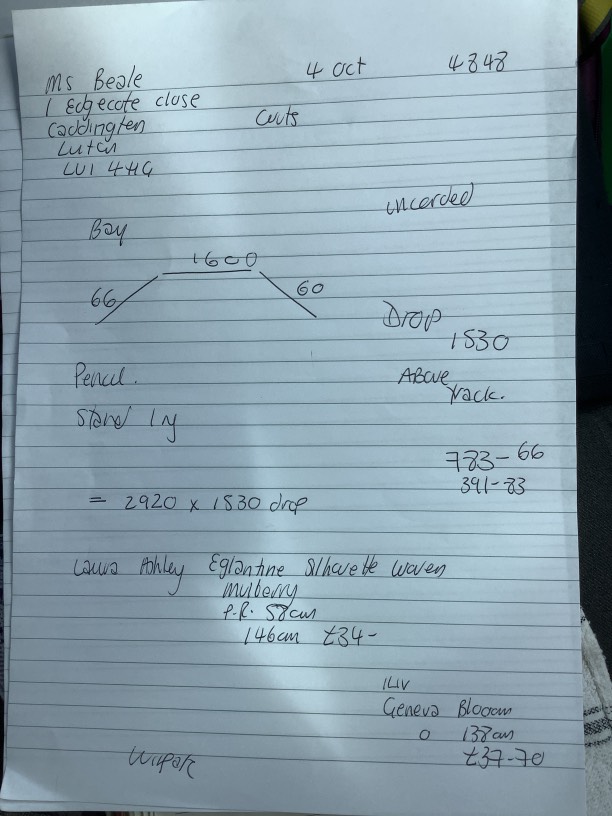 Ms Beale 4 Oct 4848
1 Edgecote close
Caddington Cuts
Luton
LU1 4HG
uncorded
Bay
1600
66 60
Drop
1530
Pencil.
Above
track.
Stand 1y
783-66
391-83
= 2920 x 1530 drop
Laura Ashley Eglantine Silhavette woven
mulberry
P.R. 58cm
146cm £34-
ILIV
Geneva Blooom
0 138cm
£37-70